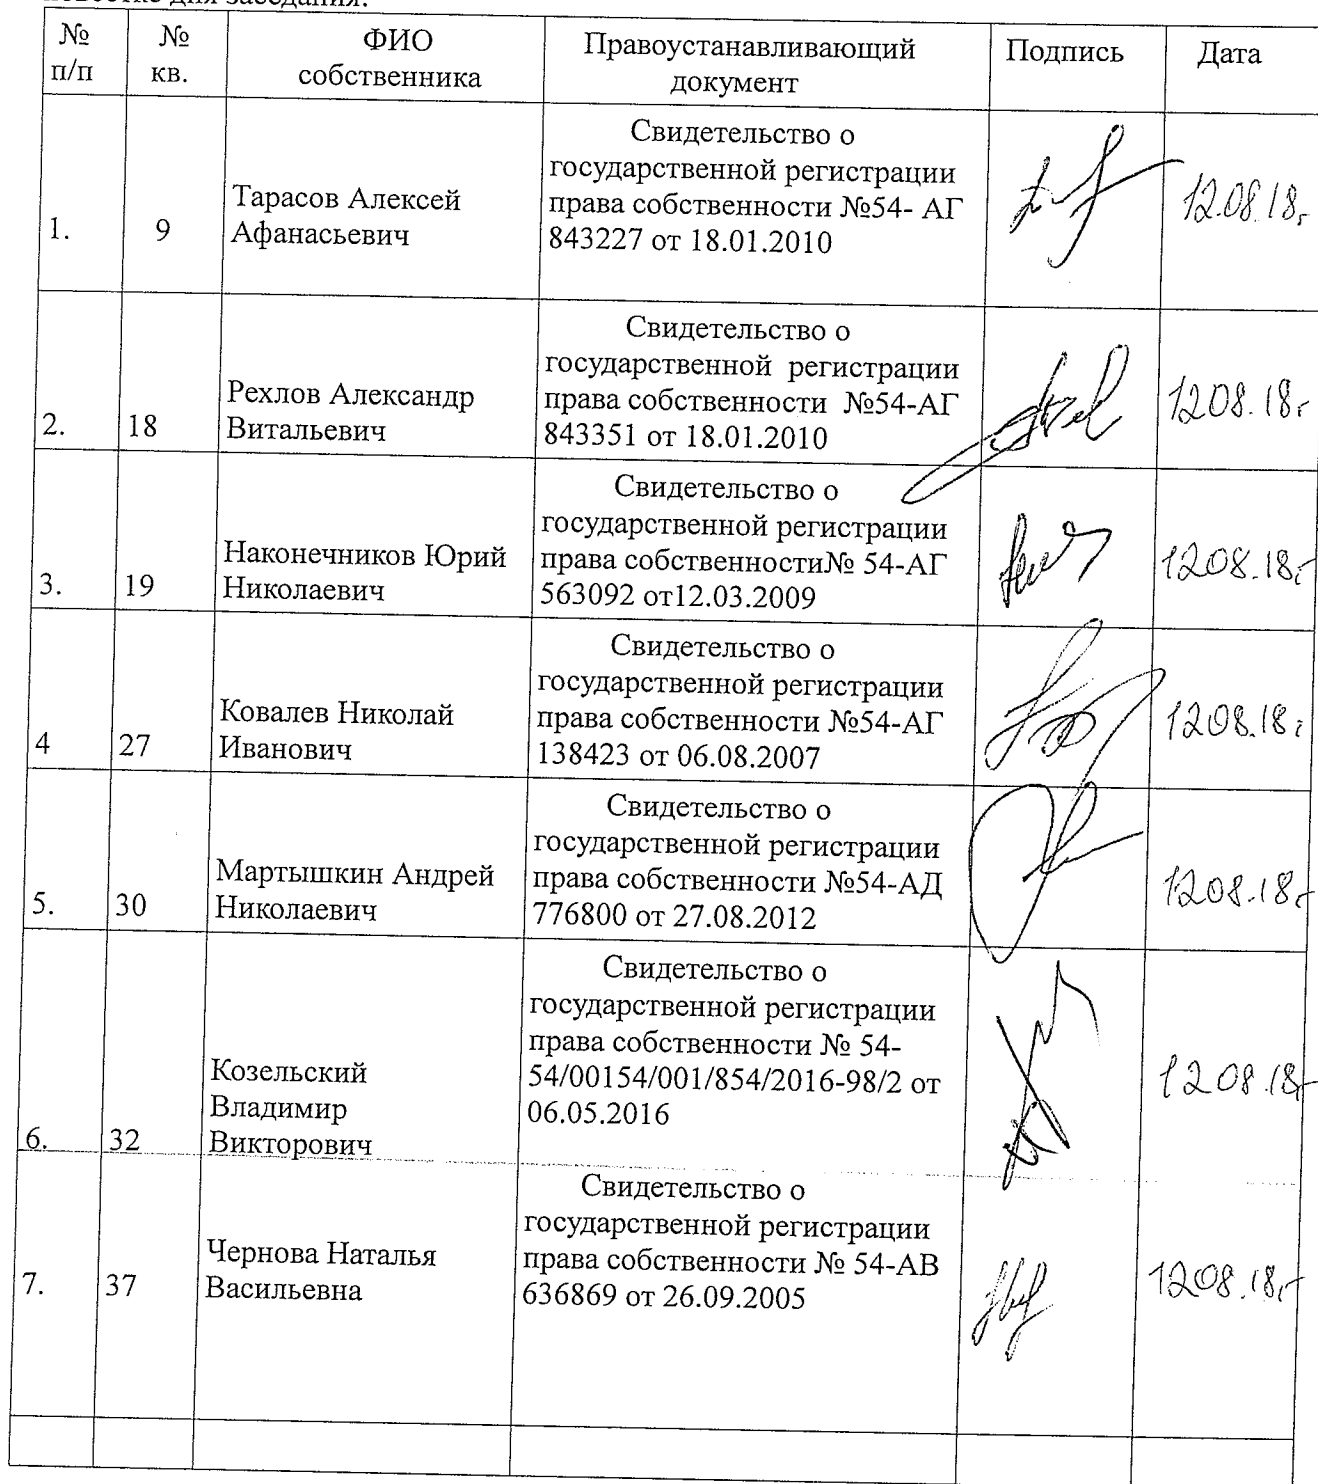 № п/п № кв. ФИО собственника Правоустанавливающий документ Подпись Дата
1. 9 Тарасов Алексей Афанасьевич
Свидетельство о
государственной регистрации
права собственности №54- АГ
843227 от 18.01.2010
12.08.18г
2. 18 Рехлов Александр Витальевич
Свидетельство о
государственной регистрации
права собственности №54-АГ
843351 от 18.01.2010
12.08.18г
3. 19 Наконечников Юрий Николаевич
Свидетельство о
государственной регистрации
права собственности№ 54-АГ
563092 от12.03.2009
12.08.18г
4 27 Ковалев Николай Иванович
Свидетельство о
государственной регистрации
права собственности №54-АГ
138423 от 06.08.2007
12.08.18г
5. 30 Мартышкин Андрей Николаевич
Свидетельство о
государственной регистрации
права собственности №54-АД
776800 от 27.08.2012
12.08.18г
6. 32 Козельский Владимир Викторович
Свидетельство о
государственной регистрации
права собственности № 54-
54/00154/001/854/2016-98/2 от
06.05.2016
12.08.18г
7. 37 Чернова Наталья Васильевна
Свидетельство о
государственной регистрации
права собственности № 54-АВ
636869 от 26.09.2005
12.08.18г